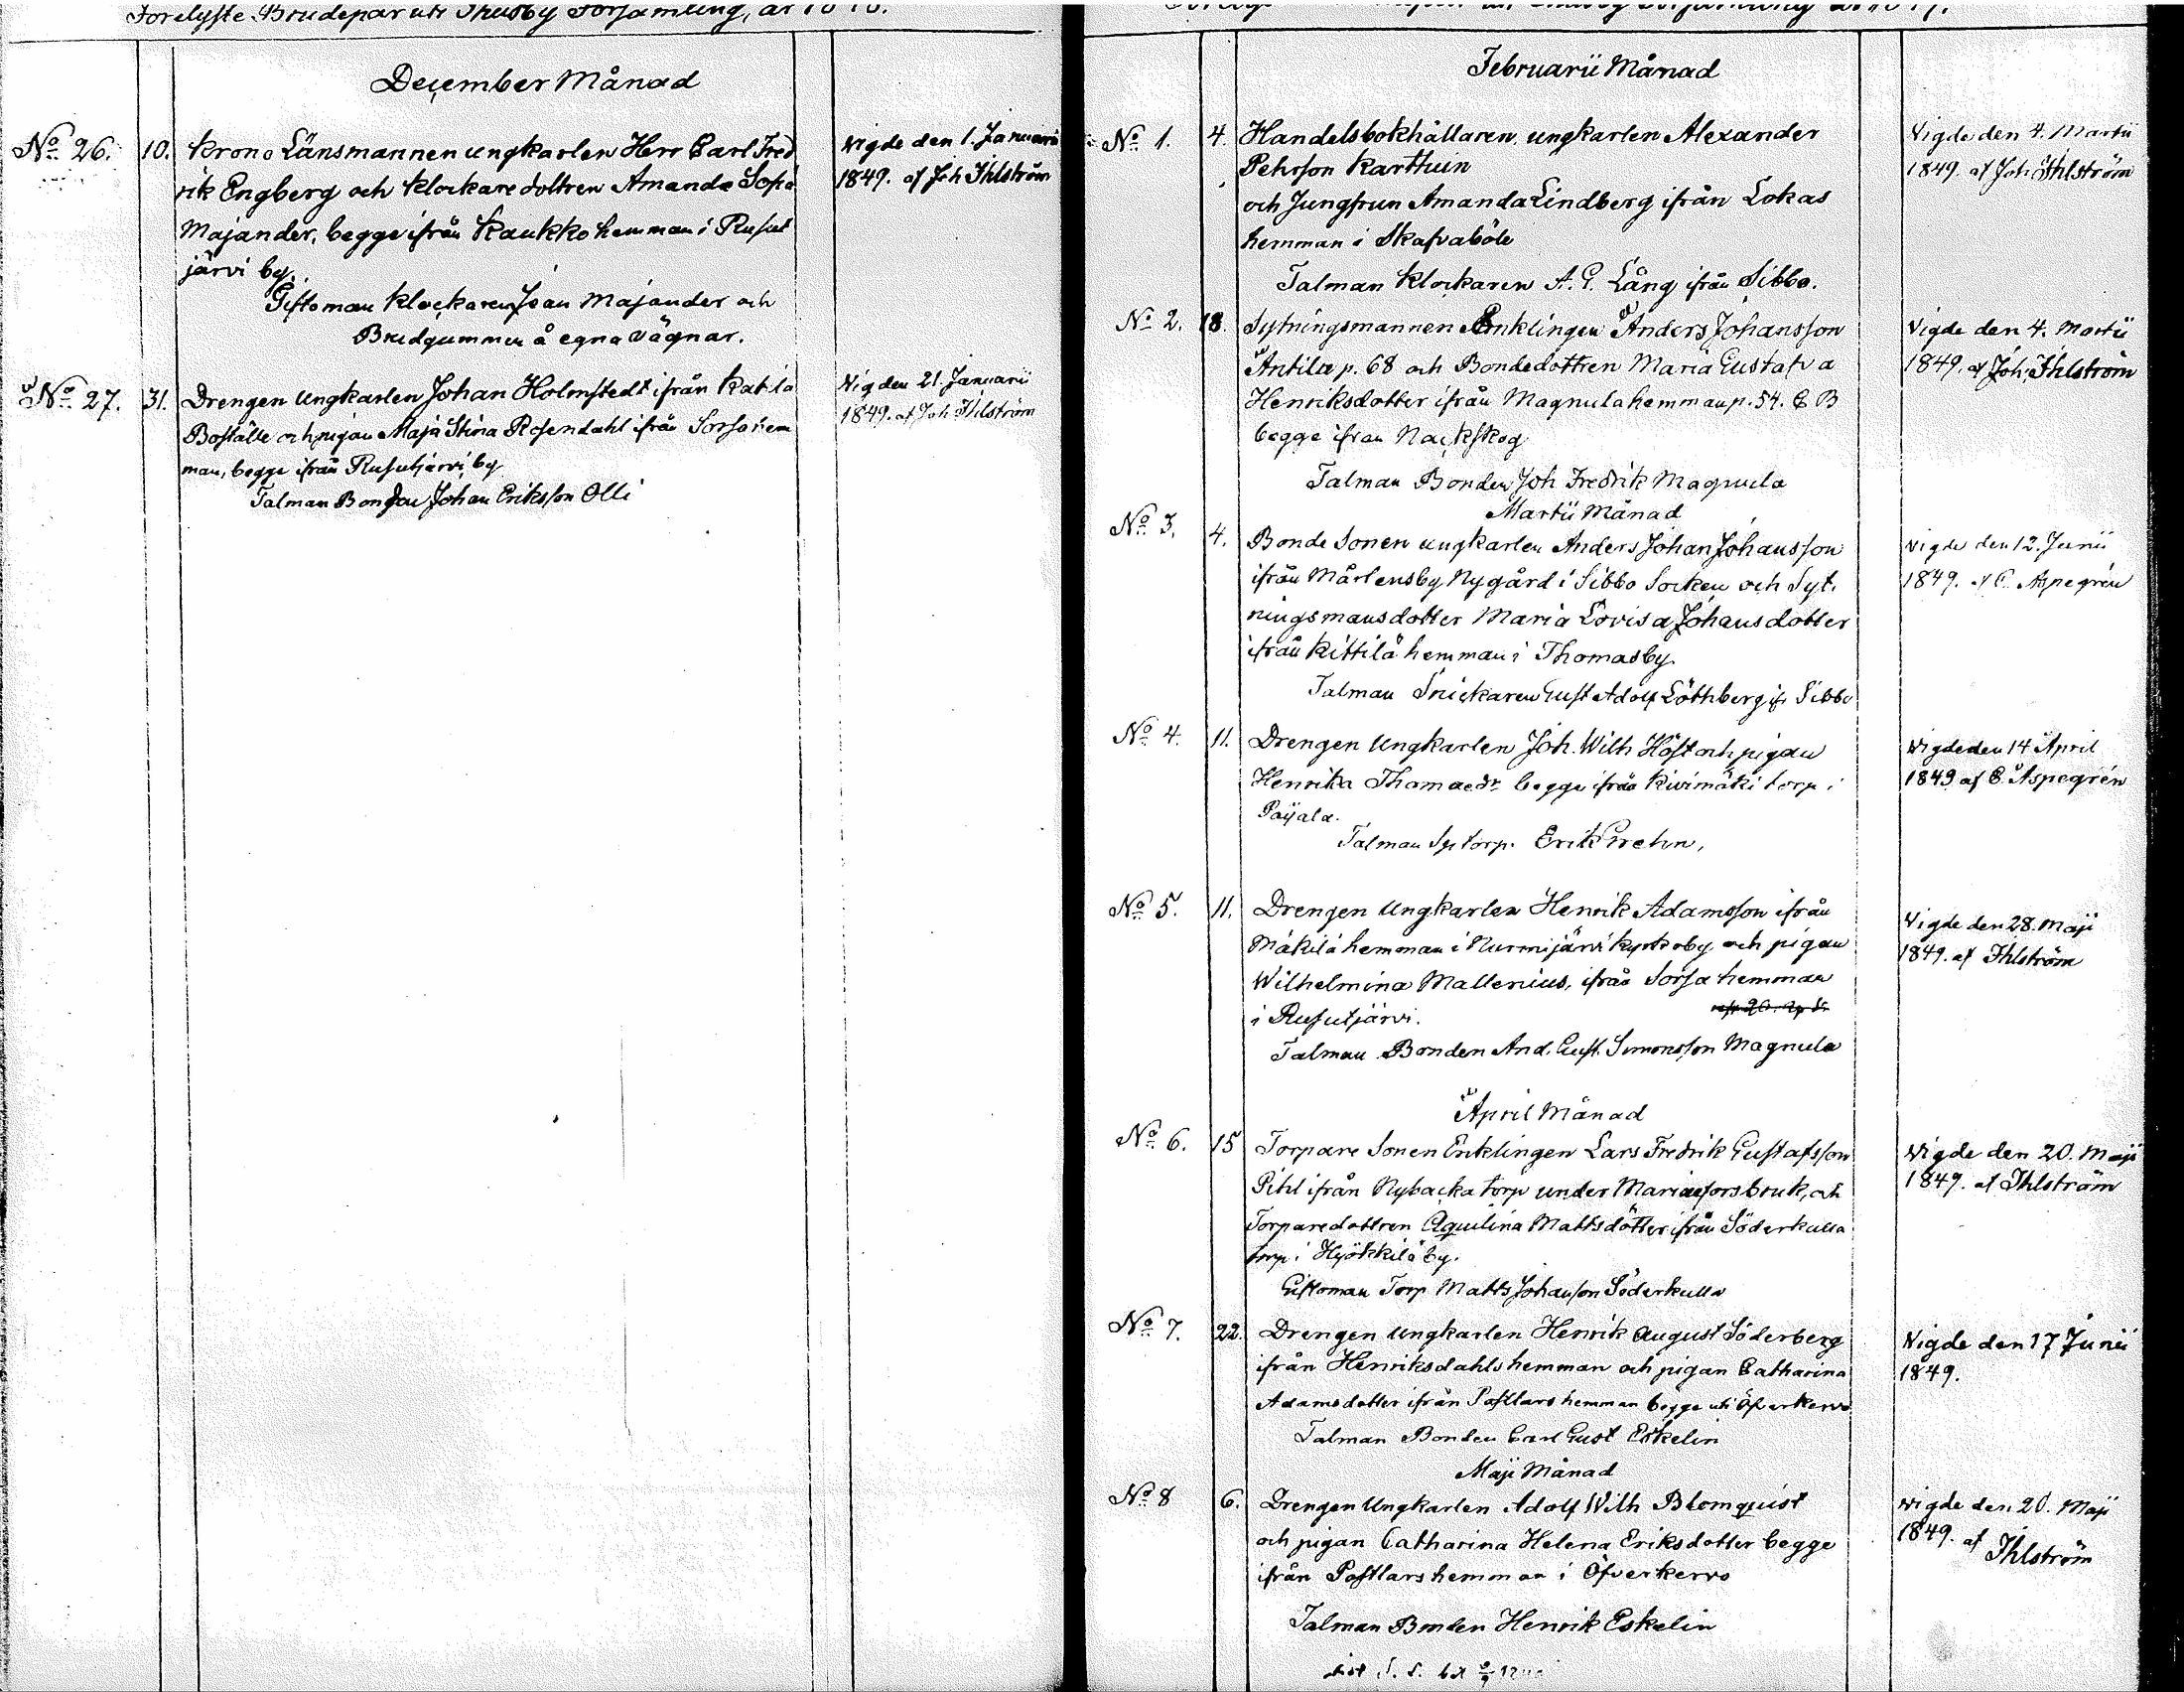 Förelyste Brudepar uti Thusby Församling, år 1848.
December Månad
No 26. 10. Krono Länsmannen ungkarlen Herr Carl Fred
rik Engberg och klockare dottren Amanda Sofia
Majander, begge ifrån Kaukko hemman i Rusut
järvi by.
Giftoman Klockaren Joan Majander och
Brudgummen å egna vägnar.
Vigde den 1. Januarii
1849. af Joh Ihlström
No 27. 31. Drengen Ungkarlen Johan Holmstedt ifrån Katila
Boställe och pigan Maja Stina Rosendahl ifrån Sorsa hem
man, begge ifrån Rusutjärvi by
Talman Bonden Johan Eriksson Olli
Vig den 21. Januarii
1849. af Joh Ihlström
Februarii Månad
No 1. 4. Handelsbokhållaren, ungkarlen Alexander
Pehrson Karthun
och Jungfrun Amanda Lindberg ifrån Lokas
hemman i Skafvaböle
Talman Klockaren A. G. Lång ifrån Sibbo.
Vigde den 4. Martii
1849. af Joh Ihlström
No 2. 18. Sytningsmannen Enklingen Anders Johansson
Antila p. 68 och Bondedottren Maria Gustafva
Henriksdotter ifrån Magnula hemman p. 54. C B
begge ifrån Nackskog
Talman Bonden Joh Fredrik Magnula
Vigde den 4. Martii
1849. af Joh. Ihlström
Martii Månad
No 3. 4. Bonde Sonen ungkarlen Anders Johan Johansson
ifrån Mårtensby Nygård i Sibbo Socken och Syt.
ningsmansdotter Maria Lovisa Johansdotter
ifrån Kittilä hemman i Thomasby.
Talman Snickaren Gust Adolf Löthberg ifr Sibbo
Vigde den 12. Junii
1849. af C. Aspegrén
No 4. 11. Drengen Ungkarlen Joh. Wilh Höst och pigan
Henrika Thomaedr begge ifrån Kivimäki torp i
Paijala.
Talman Sytorp. Erik Grehn.
Vigde den 14 April
1849 af C. Aspegrén
No 5. 11. Drengen Ungkarlen Henrik Adamsson ifrån
Mäkilä hemman i Nurmijärvi kyrkoby och pigan
Wilhelmina Mallenius, ifrån Sorsa hemman
i Rusutjärvi.
Talman Bonden And. Gust. Simonsson Magnula
Vigde den 28. Maji
1849. af Ihlström
April Månad
No 6. 15 Torpare Sonen Enklingen Lars Fredrik Gustafsson
Pihl ifrån Nybacka torp under Mariaeforsbruk, och
Torparedottren Aquilina Mattsdotter ifrån Söderkulla
torp i Hyökkilä by.
Giftoman Torp Matts Johanson Söderkulla
Vigde den 20. Maji
1849. af Ihlström
No 7. 22. Drengen Ungkarlen Henrik August Söderberg
ifrån Henriksdahls hemman och pigan Catharina
Adamsdotter ifrån Postlars hemman begge uti Öfverkervo
Talman Bonden Carl Gust Eskelin
Vigde den 17 Junii
1849.
Maji Månad
No 8 6. Drengen Ungkarlen Adolf Wilh Blomquist
och pigan Catharina Helena Eriksdotter begge
ifrån Postlars hemman i Öfverkervo
Talman Bonden Henrik Eskelin
Vigde den 20. Maji
1849. af
Ihlström